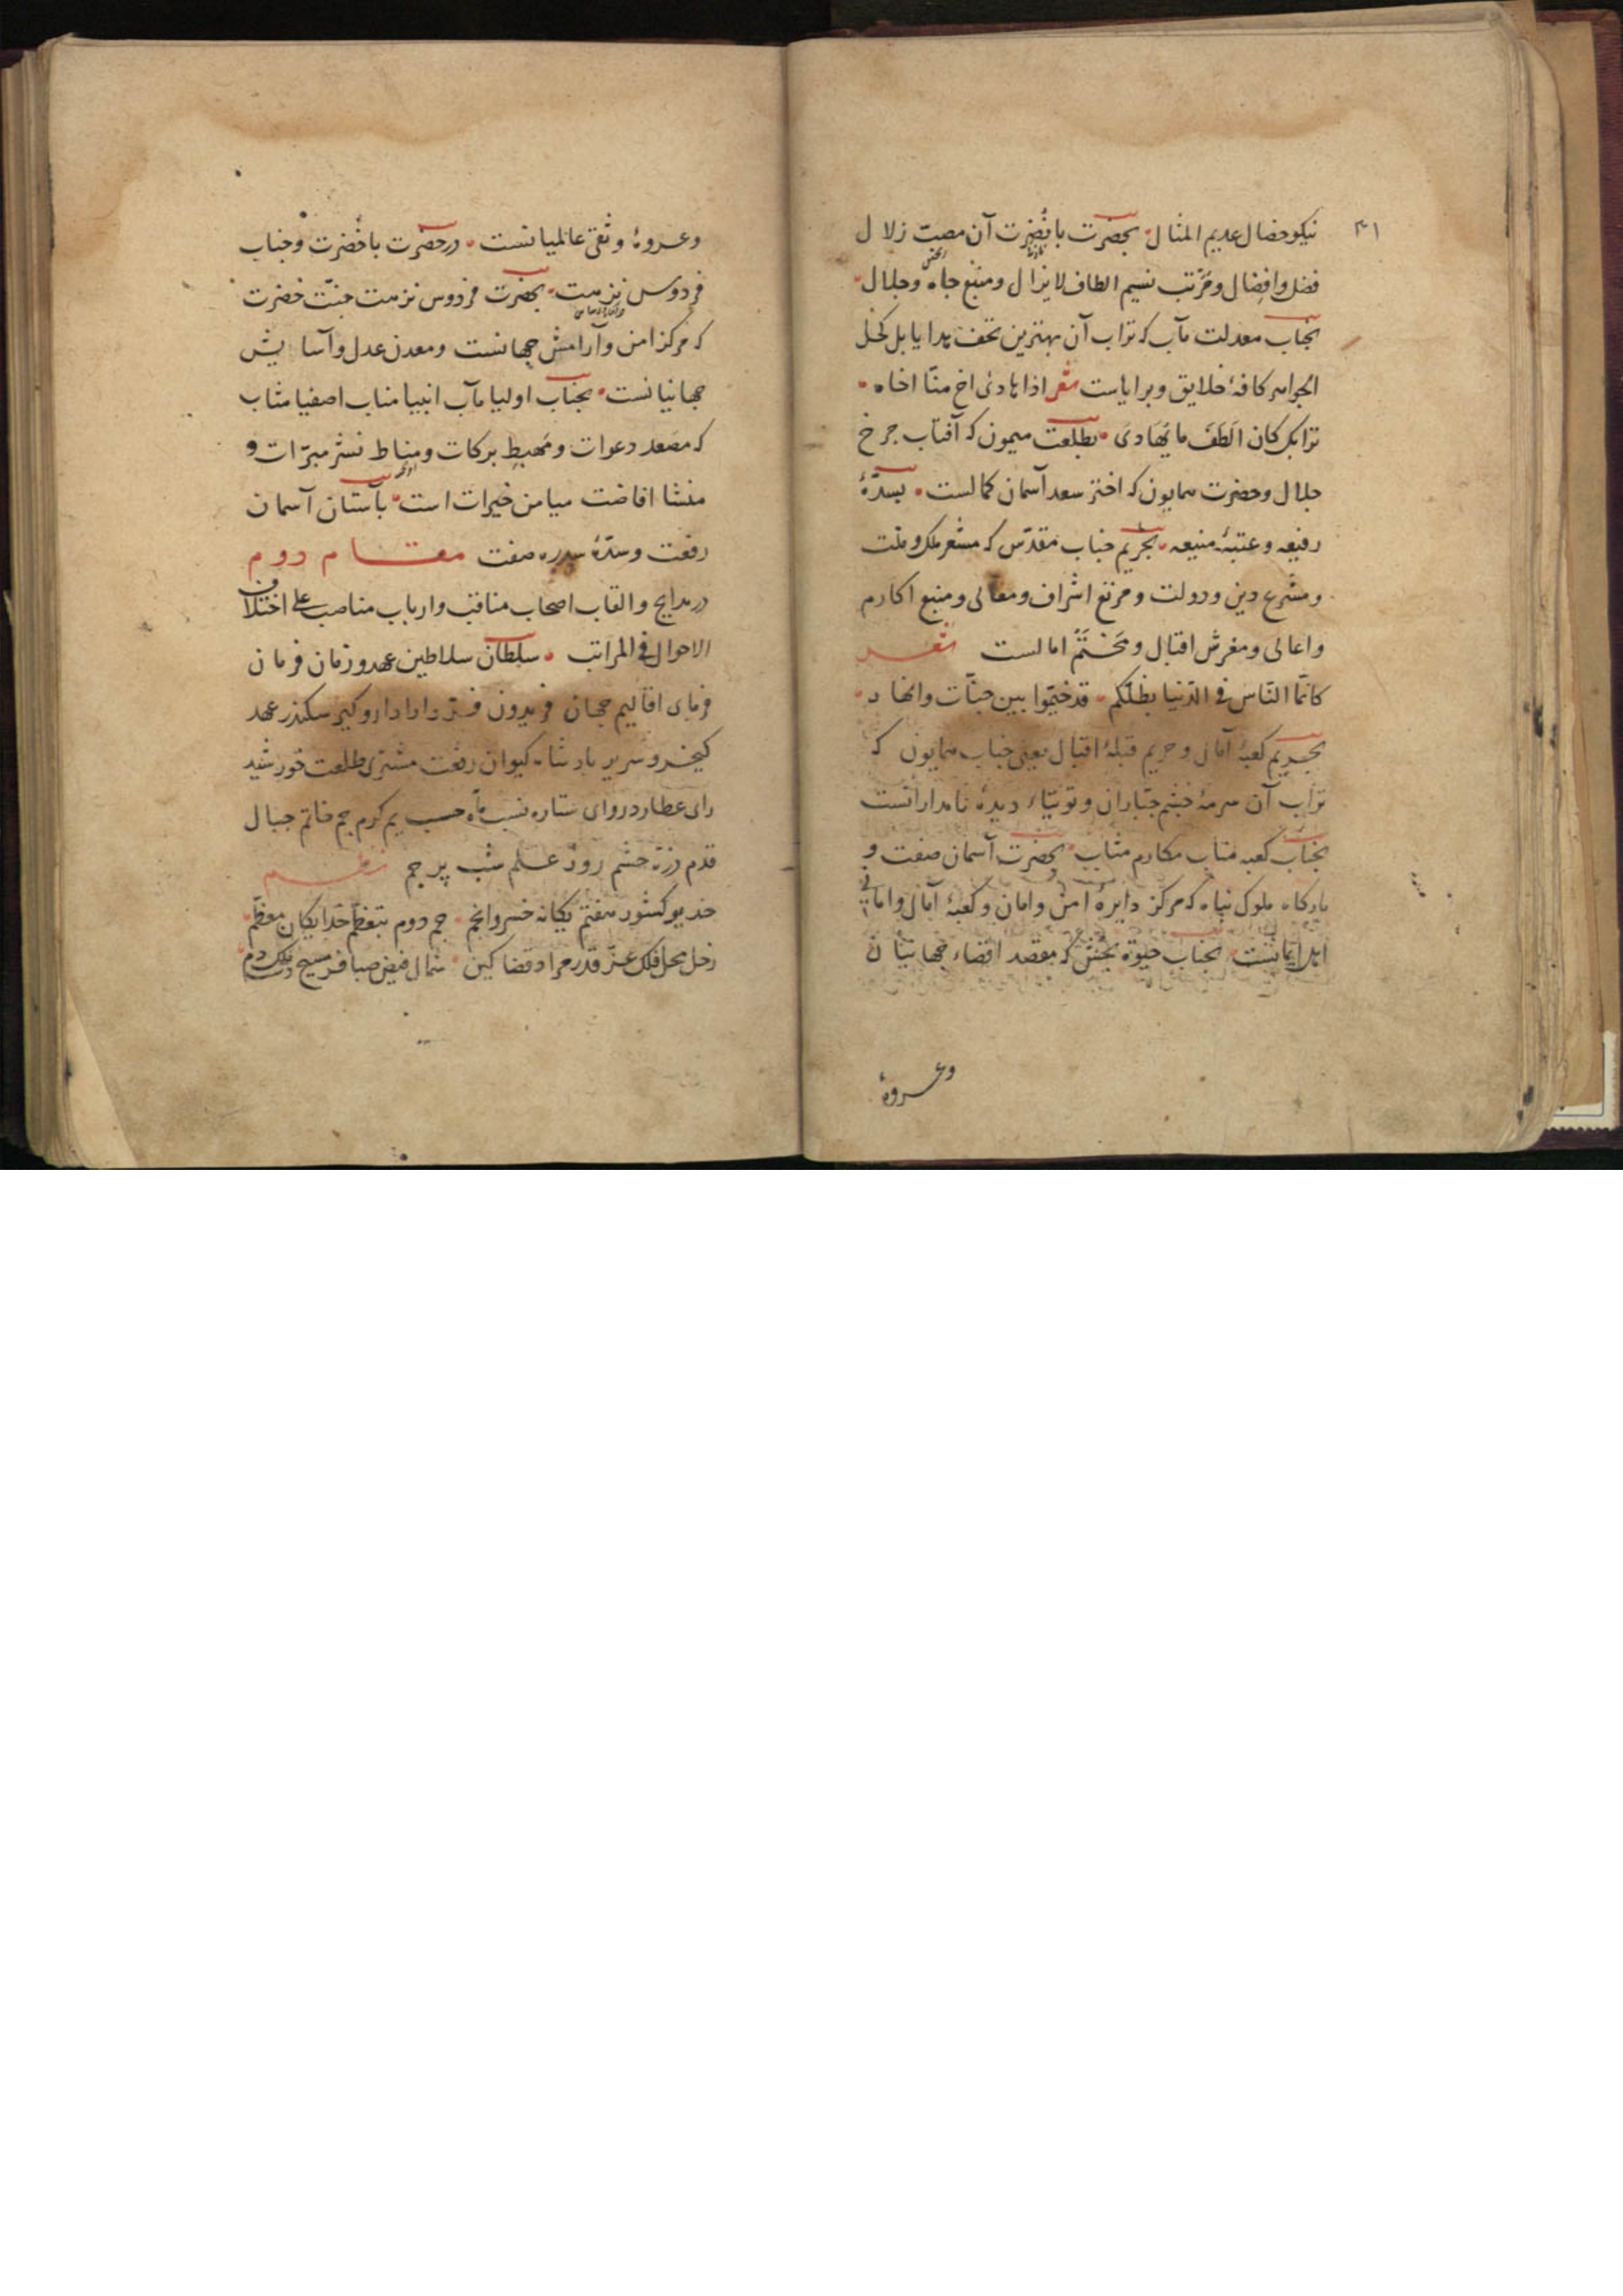 ۳۱
نیکو خصال عدیم المثال بحضرت با نُضرت آن مصبّ زلال
فضل وافضال و مَرْتب نسیم الطاف لایزال و منبع جاه و جلال
بجناب معدلت مآب که تراب آن بهترین تحف هدایا بل کحل
الجواهر کافهٔ خلایق و برایاست شعر اذا هادی اخ منّا اخاه
ترابک کان الطَفَ ما یُهَادی بطلعت میمون که آفتاب چرخ
جلال وحضرت همایون که اختر سعد آسمان کمالست بسدّهٔ
رفیعه و عتبهٔ منیعه بحریم جناب مقدّس که مشعر ملک و ملّت
و مشرع دین و دولت و مرتع اشراف و معالی و منبع اکارم
و اعالی و مغرش اقبال و مَخْتَم امالست شعر
کانّما النّاس فی الدّنیا بظلّکم قد خیّموا بین جنّات وانهاد
بحریم کعبهٔ آمال و حریم قبلهٔ اقبال یعنی جناب همایون که
تراب آن سرمهٔ چشم جبّاران و توتیاء دیدهٔ نامدارانست
بجناب کعبه مناب مکارم مثاب بحضرت آسمان صفت و
بارگاه ملوک پناه که مرکز دایرهٔ امن و امان و کعبهٔ آمال و امانی
اهل ایمانست بجناب حیوة بخش که مقصد اقضاء جهانیان
وعروهٔ
وعروهٔ وثقی عالمیانست در حضرت با خُضرت و جناب
فردوس نزهت بحضرت فردوس نزهت جنّت خضرت
که مرکز امن و آرامش جهانست و معدن عدل و آسایش
جهانیانست بجناب اولیا مآب انبیا مناب اصفیا مثاب
که مصعد دعوات و مهبط برکات و مناط نشر مبرّات و
منشا افاضت میامن خیرات است بآستان آسمان
رفعت و سدّهٔ سدره صفت مقام دوم
در مدایح و القاب اصحاب مناقب و ارباب مناصب علی اختلاف
الاحوال فی المراتب سلطان سلاطین عهد و زمان فرمان
فرمای اقالیم جهان فریدون فر دارا دار و گیر سکندر عهد
کیخسرو سریر پادشاه کیوان رفعت مشتری طلعت خورشید
رای عطارد روای ستاره نسب ماه حسب یم کرم جم خاتم جبال
قدم ذرّه حشم روز علم شب پرچم نظم
خدیو کشور هفتم یگانه خسرو انجم جم دوم بتعظّم خدایگان معظّم
زحل محل فلک عزّ قدر مراد قضا کین شمال فیض صبا فر مسیح دست ملک دم